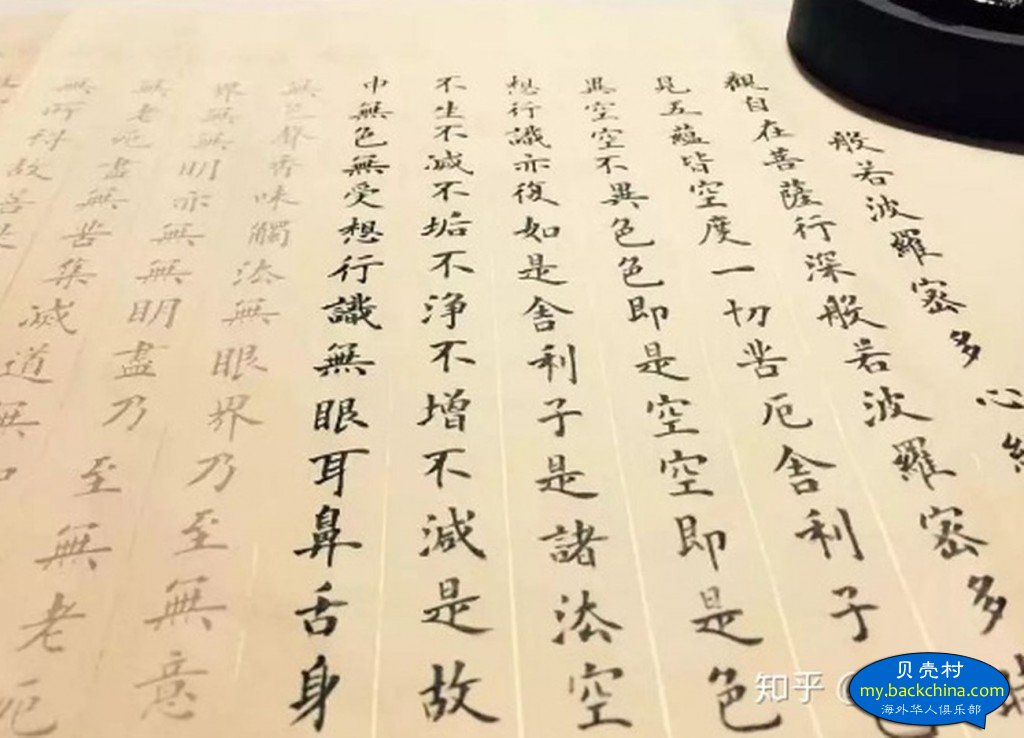 般若波羅密多心經
觀自在菩薩行深般若波羅密多
見五蘊皆空度一切苦厄舍利子色
異空空不異色色即是空空即是色
想行識亦復如是舍利子是諸法空
不生不滅不垢不淨不增不減是故
中無色無受想行識無眼耳鼻舌身
無色聲香味觸法無眼界乃至無意
界無無明亦無無明盡乃至無老死
無老死盡無苦集滅道無
無所得故菩
知乎
贝壳村
my.backchina.com
海外华人俱乐部